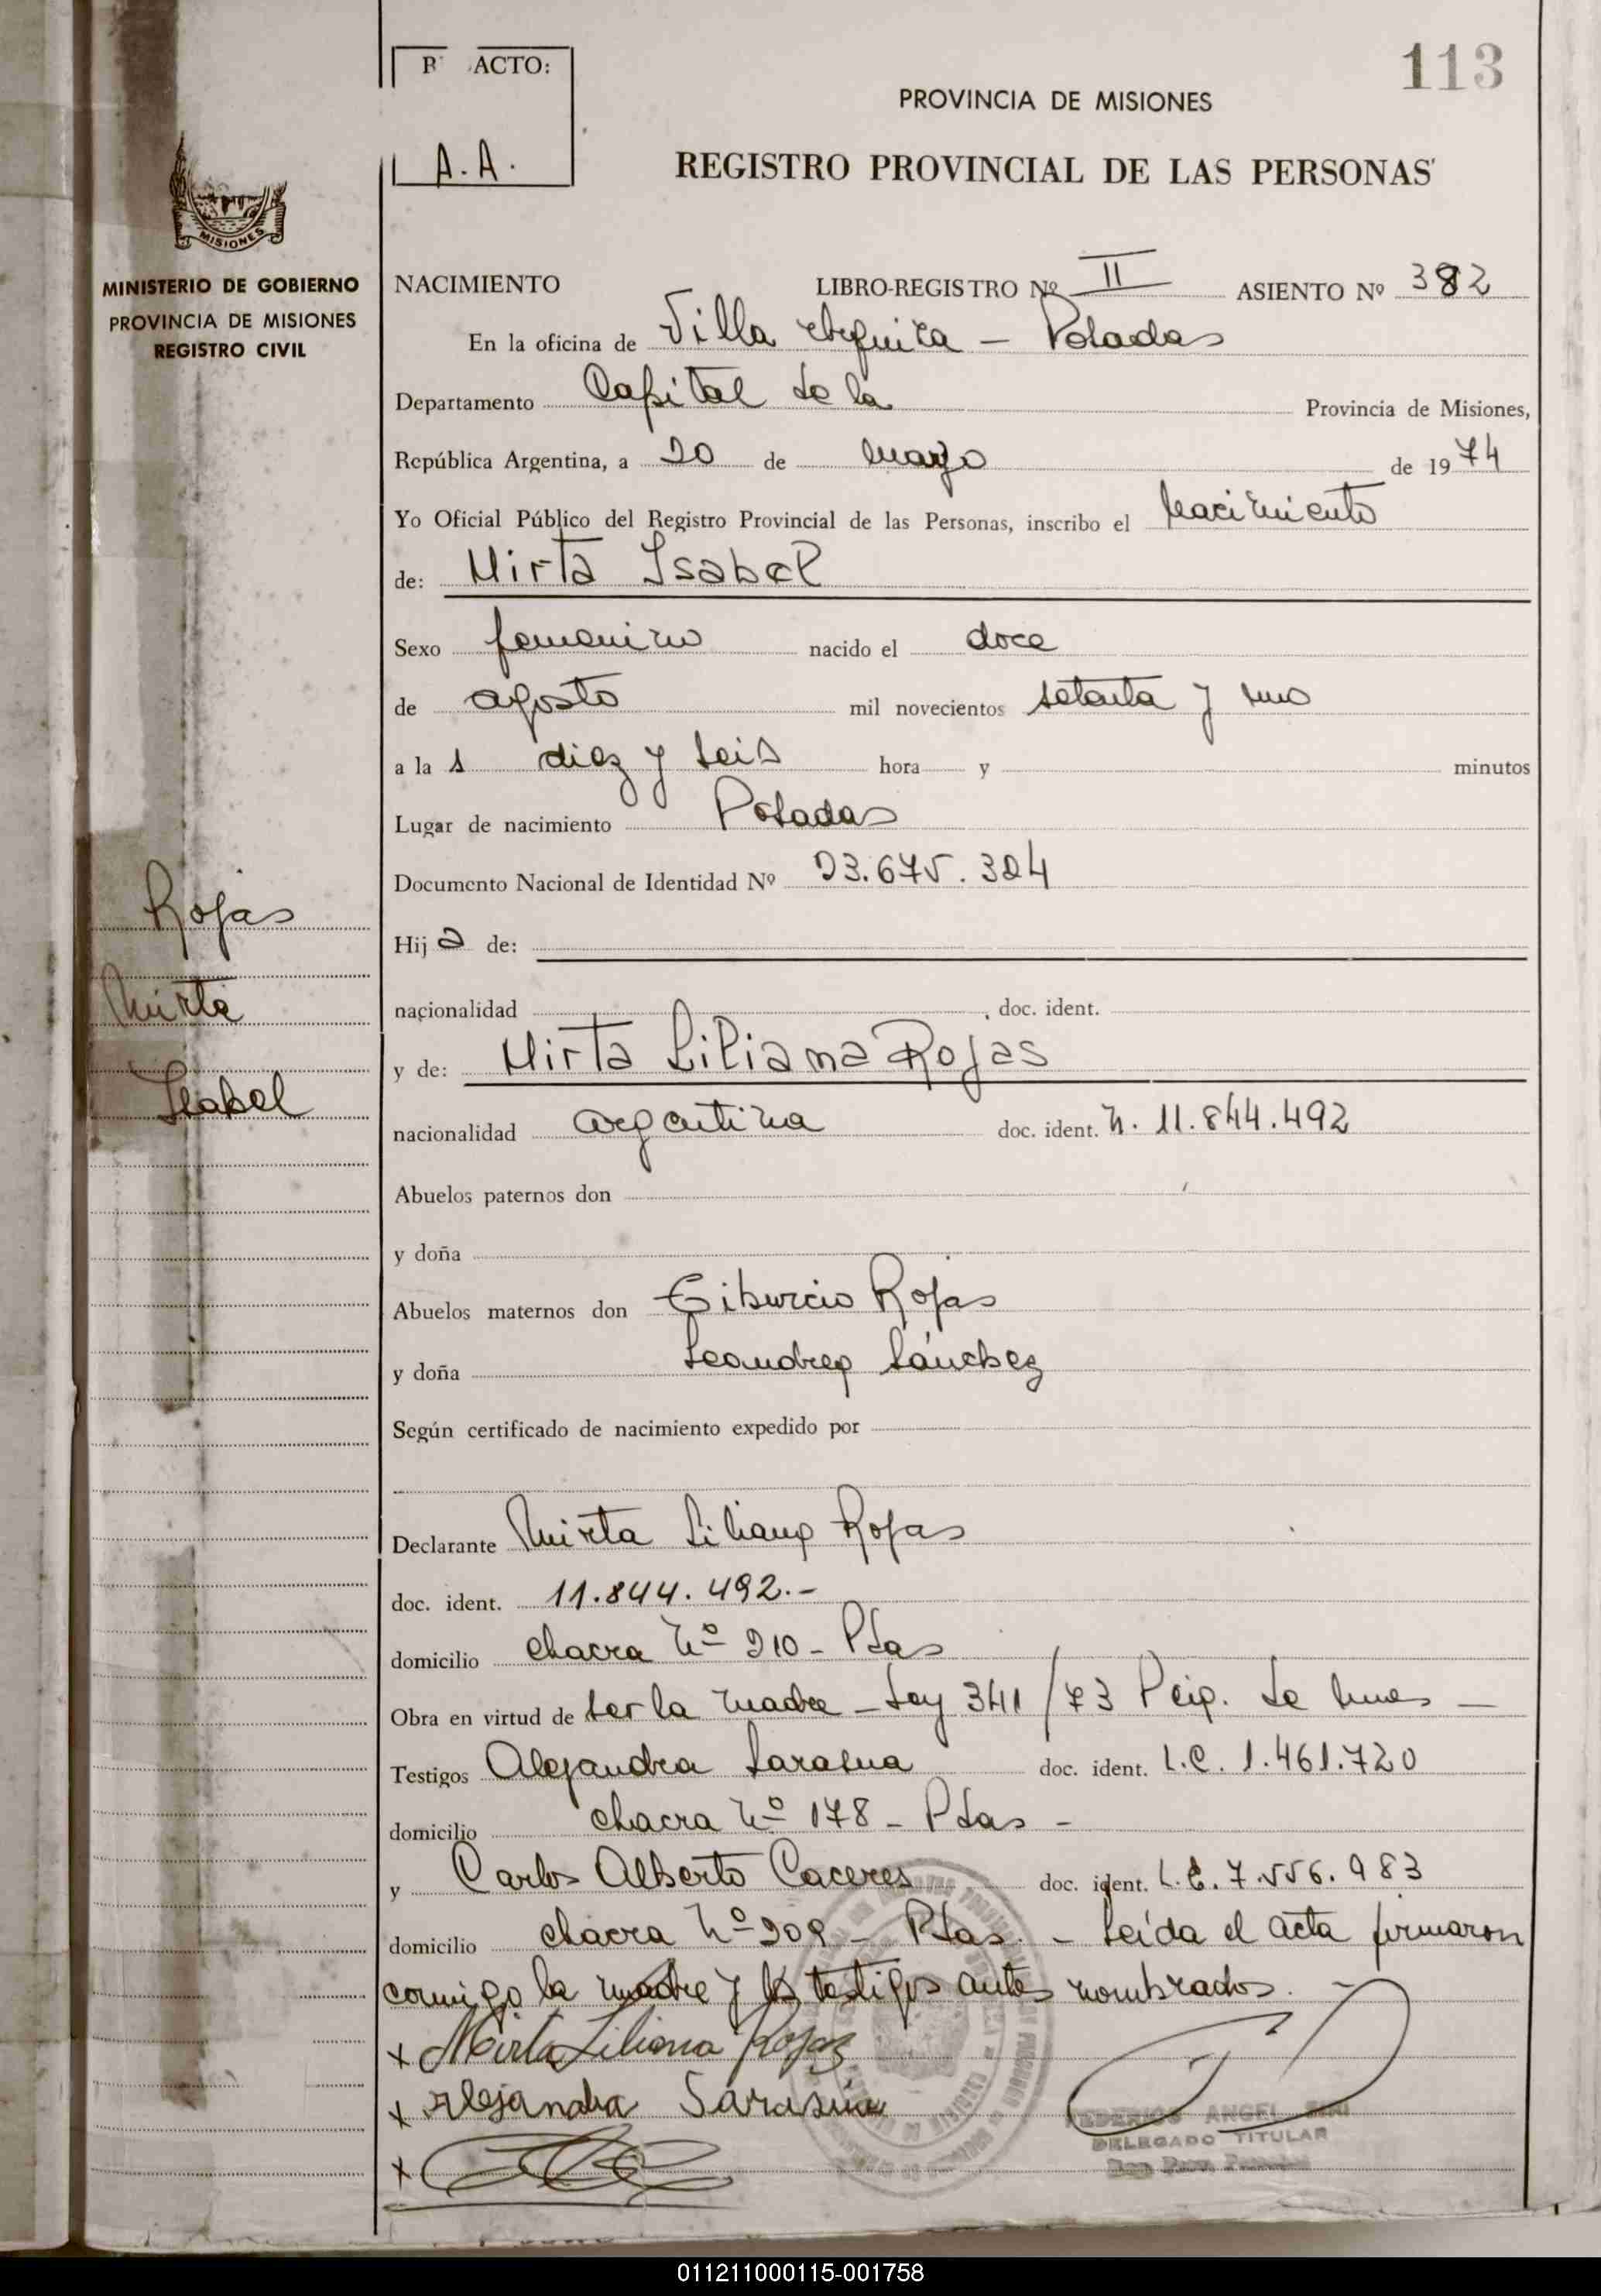 113
ACTO:
A.A.
PROVINCIA DE MISIONES
REGISTRO PROVINCIAL DE LAS PERSONAS
MISIONES
MINISTERIO DE GOBIERNO
PROVINCIA DE MISIONES
REGISTRO CIVIL
NACIMIENTO LIBRO-REGISTRO Nº II ASIENTO Nº 382
En la oficina de Villa Urquiza - Posadas
Departamento Capital de la Provincia de Misiones,
República Argentina, a 20 de marzo de 1974
Yo Oficial Público del Registro Provincial de las Personas, inscribo el nacimiento
de: Mirta Isabel
Sexo femenino nacido el doce
de agosto mil novecientos setenta y uno
a las diez y seis hora y minutos
Lugar de nacimiento Posadas
Documento Nacional de Identidad Nº 23.675.324
Rojas
Mirta
Isabel
Hija de:
nacionalidad , doc. ident.
y de: Mirta Liliana Rojas
nacionalidad argentina doc. ident. n. 11.844.492
Abuelos paternos don
y doña
Abuelos maternos don Tiburcio Rojas
y doña Leandra Sánchez
Según certificado de nacimiento expedido por
Declarante Mirta Liliana Rojas
doc. ident. 11.844.492.-
domicilio chacra nº 210 - Psas
Obra en virtud de ser la madre - Ley 341/73 de -
Testigos Alejandra Sarasua doc. ident. L.C. 1.461.720
domicilio chacra nº 178 - Psas -
y Carlos Alberto Caceres doc. ident. L.E. 7.556.983
domicilio chacra nº 209 - Psas. - Leída el acta firmaron
conmigo la madre y los testigos antes nombrados.
x Mirta Liliana Rojas
x Alejandra Sarasúa
x
ANGEL
DELEGADO TITULAR
011211000115-001758